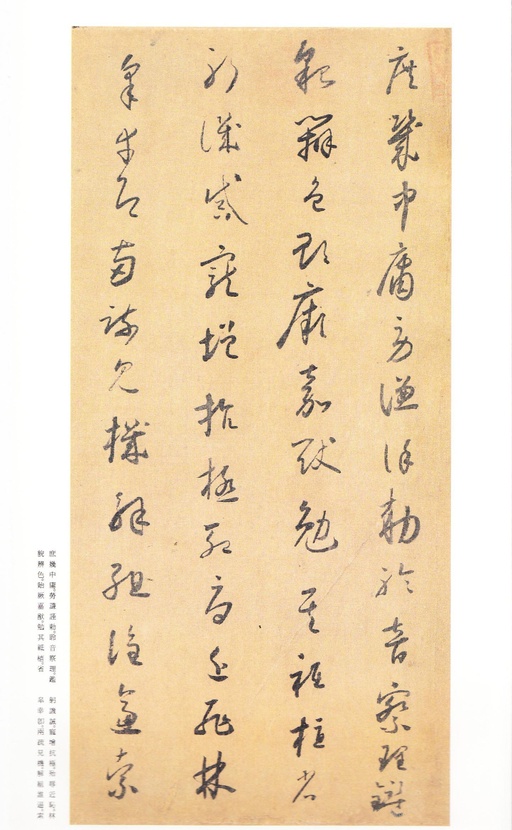 庶幾中庸勞謙謹勑聆音察理鑑
貌辨色貽厥嘉猷勉其祗植省
躬譏誡寵增抗極殆辱近恥林
皋幸即兩疏見機解組誰逼索
庶幾中庸勞謙謹勑聆音察理鑑
貌辨色貽厥嘉猷勉其祗植省
躬譏誡寵增抗極殆辱近恥林
皋幸即兩疏見機解組誰逼索